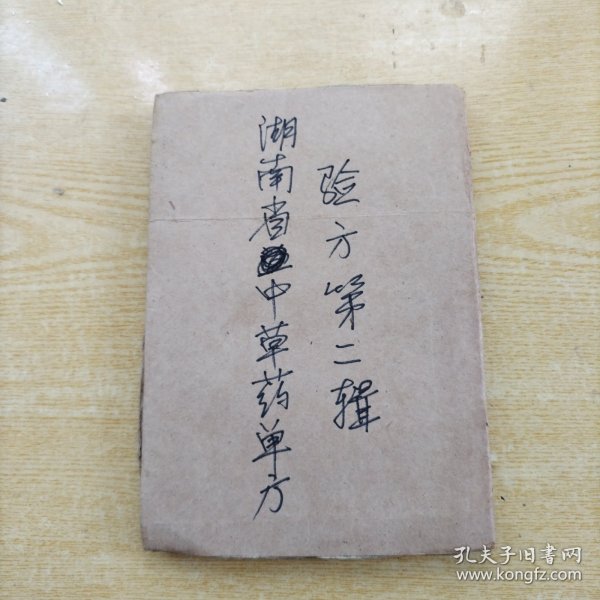 湖南省中草药单方
验方第二辑
孔夫子旧書网
www.kongfz.com